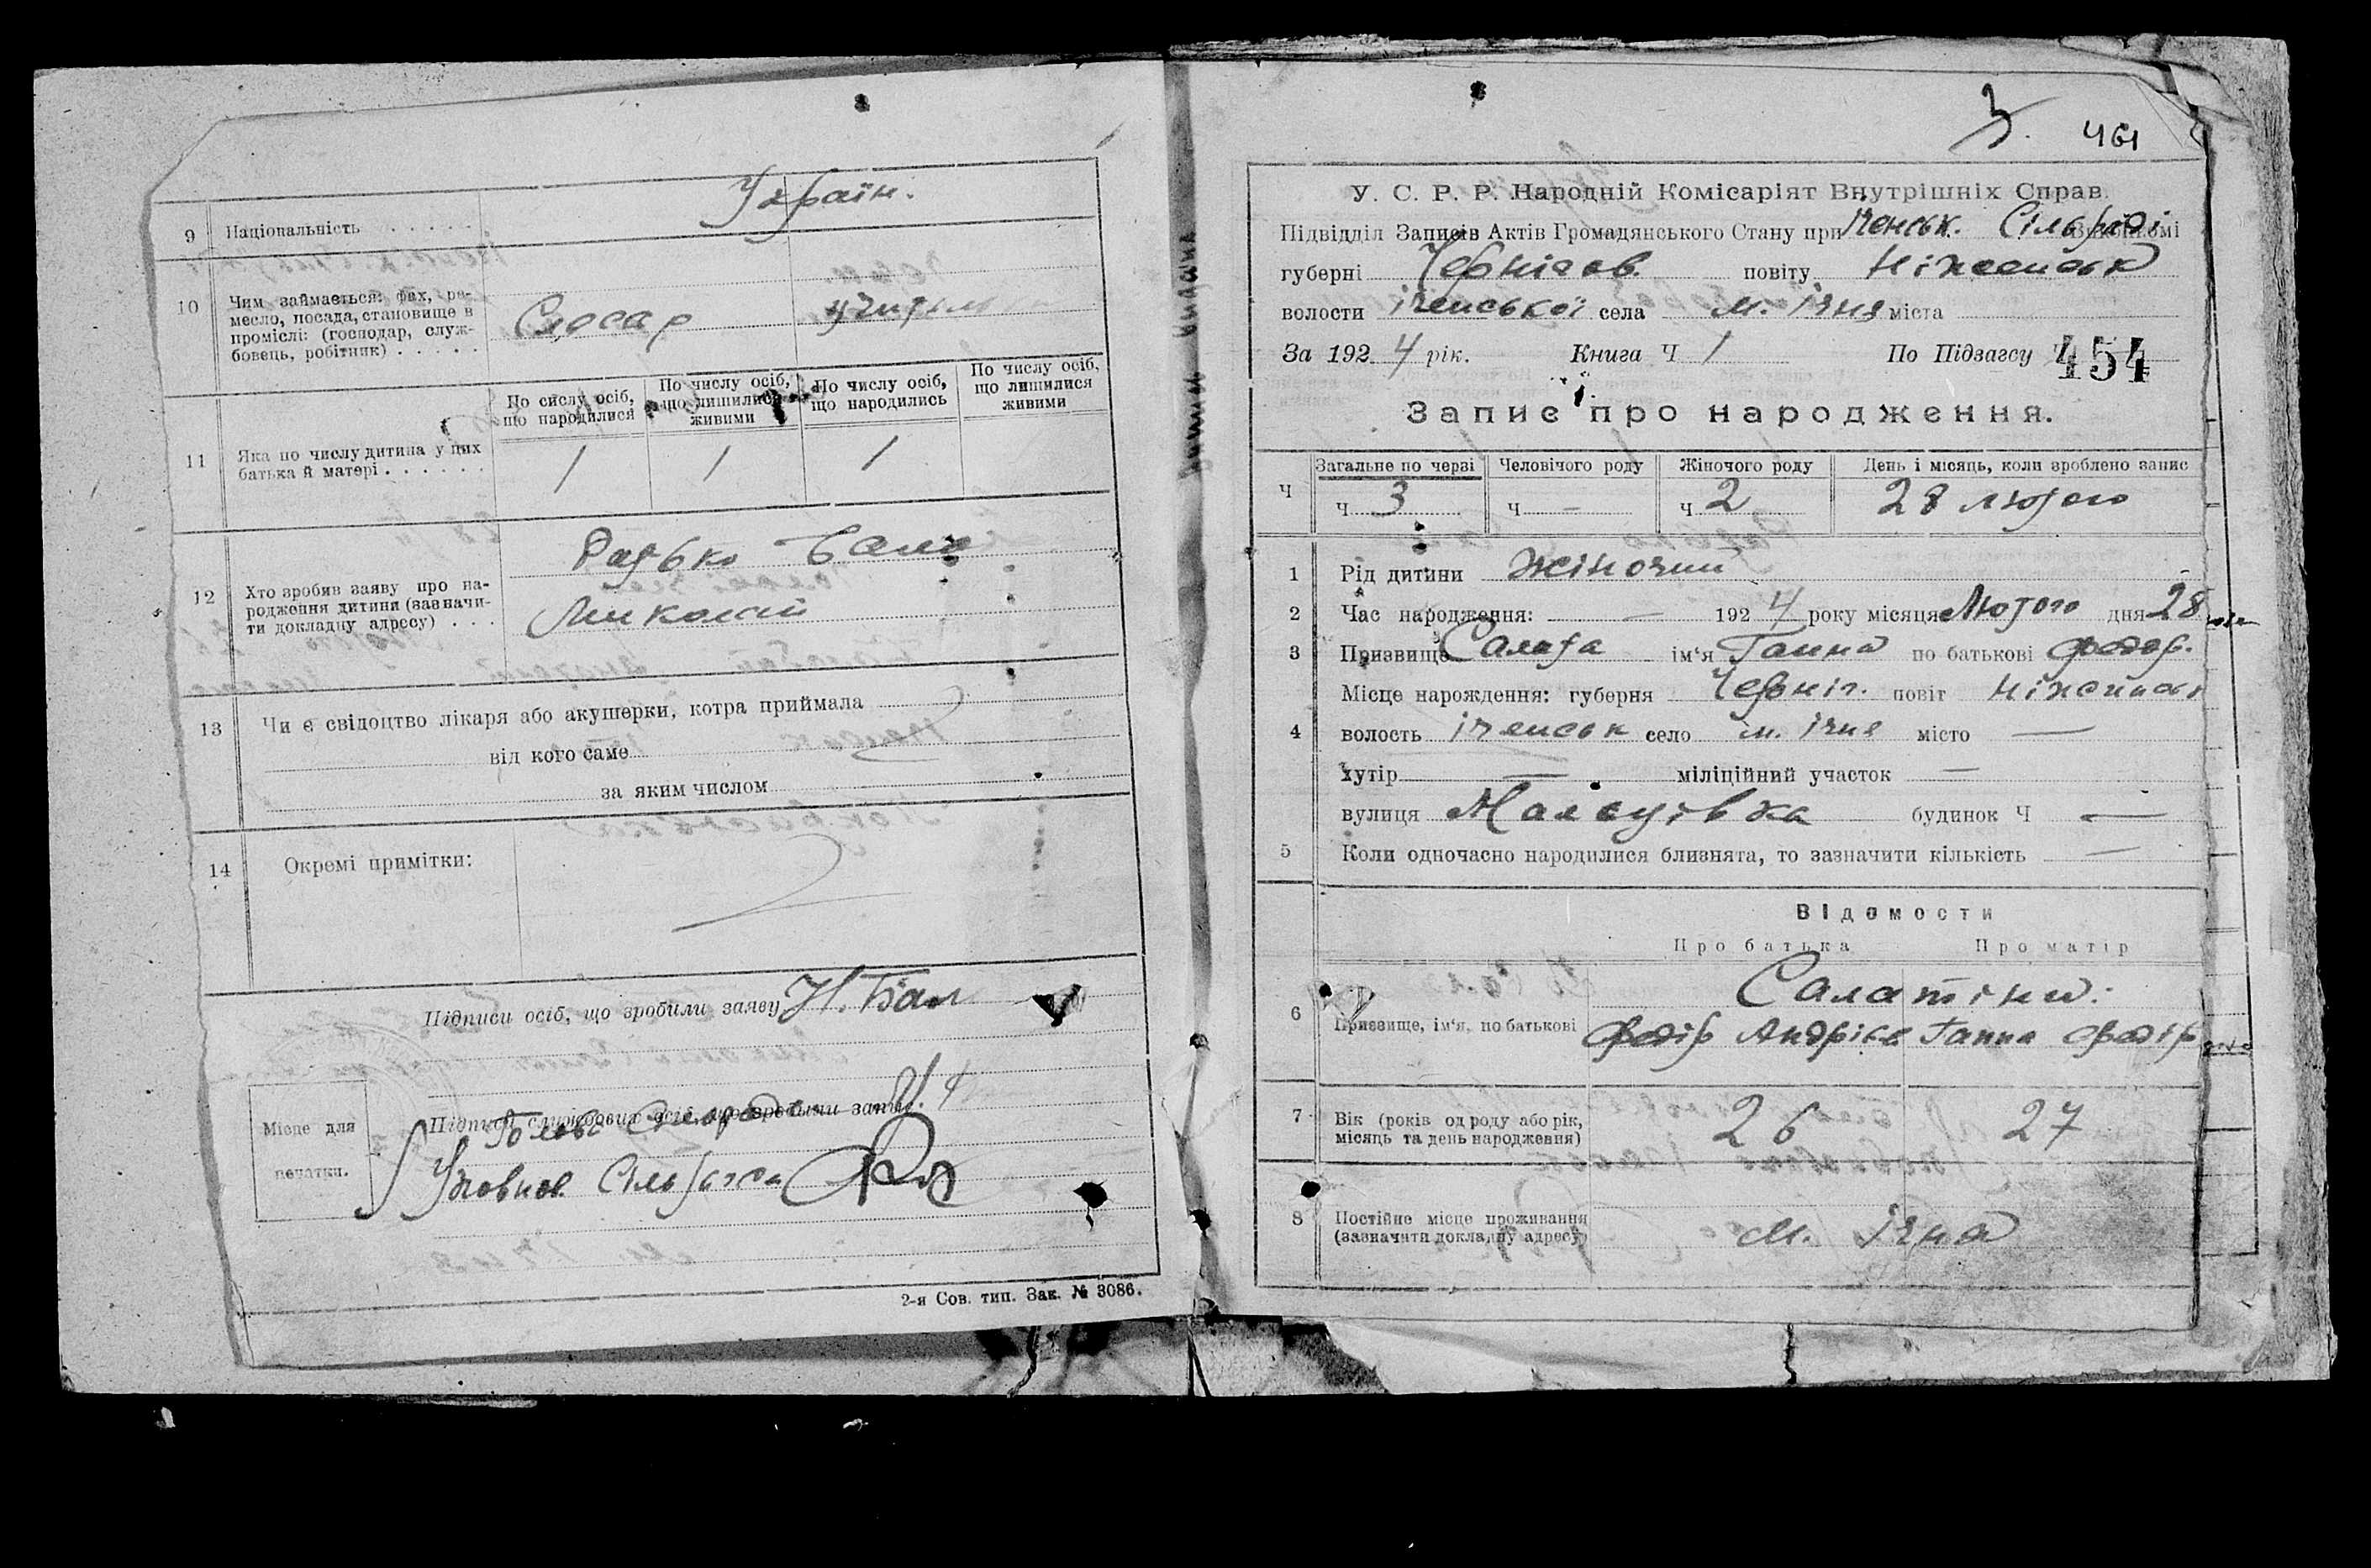 9 Національність . . . . . Україн.
10 Чим займається: фах, ре-
месло, посада, становище в
проміслі: (господар, служ-
бовець, робітник) . . . . .
Слюсар
По числу осіб, що народилися
По числу осіб, що лишилися живими
По числу осіб, що народились
По числу осіб, що лишилися живими
11 Яка по числу дитина у цих
батька й матері . . . . . .
1 1 1
12 Хто зробив заяву про на-
родження дитини (зазначи-
ти докладну адресу) . . .
Миколай
13 Чи є свідоцтво лікаря або акушерки, котра приймала
від кого саме
за яким числом
14 Окремі примітки:
Підписи осіб, що зробили заяву
Підписи службових осіб, що зробили запис
Голова
Місце для
печатки.
2-я Сов. тип. Зак. № 3086.
3. 461
У. С. Р. Р. Народній Комісаріят Внутрішніх Справ.
Підвідділ Записів Актів Громадянського Стану при Іченськ. Сільраді
губерні Чернігов. повіту Ніженськ
волости іченської села м. ічня міста
За 1924 рік. Книга Ч 1 По Підзагсу Ч 454
Запис про народження.
Ч
Загальне по черзі Человічого роду Жіночого роду День і місяць, коли зроблено запис
Ч 3 Ч — Ч 2 28 лютого
1 Рід дитини жіночий
2 Час народження: — 1924 року місяця Лютого дня 28
3 Призвище Салата ім'я Ганна по батькові Федор.
Місце народження: губерня Черніг. повіт Ніженськ
4 волость іченськ село м. ічня місто —
хутір — міліційний участок —
вулиця будинок Ч —
5 Коли одночасно народилися близнята, то зазначити кількість —
Відомости
Про батька Про матір
Салатіни:
6 Призвище, ім'я, по батькові Федір Андріев Ганна Федір
7 Вік (років од роду або рік,
місяць та день народження)
26 27
8 Постійне місце проживання
(зазначити докладну адресу)
м. Ічня